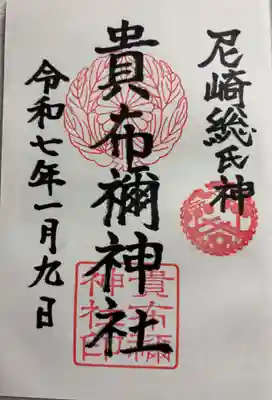 尼崎総氏神
貴布禰神社
令和七年一月九日
貴布禰
神社印